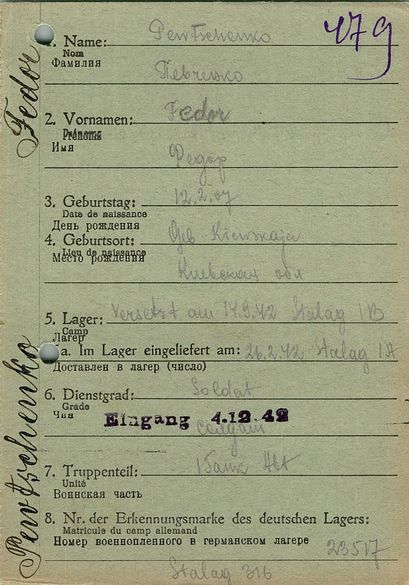 479
1. Name: Pewtschenko
Nom
Фамилия
Певченко
2. Vornamen: Fedor
Prénoms
Имя
Федор
3. Geburtstag: 12.2.07
Date de naissance
День рождения
4. Geburtsort: Geb Kiewskaja
Lieu de naissance
Место рождения
Киевская обл
5. Lager: Versetzt am 14.9.42 Stalag I B
Camp
Лагерь
a. Im Lager eingeliefert am: 26.2.42 Stalag I A
Доставлен в лагер (число)
6. Dienstgrad: Soldat
Grade
Чин
Eingang 4.12.42
солдат
7. Truppenteil:
Unité
Воинская часть
8. Nr. der Erkennungsmarke des deutschen Lagers:
Matricule du camp allemand
Номер военнопленного в германском лагере
23517
Stalag 316
Pewtschenko Fedor